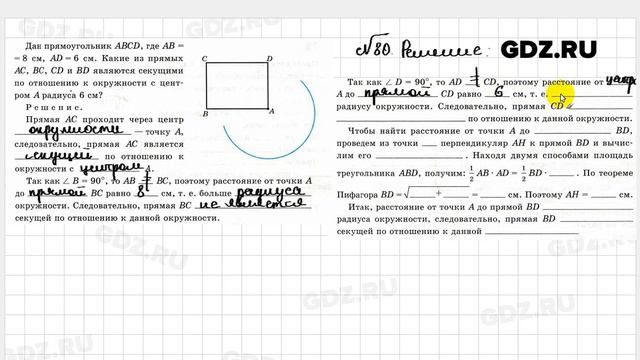 Дан прямоугольник ABCD, где AB =
= 8 см, AD = 6 см. Какие из прямых
AC, BC, CD и BD являются секущими
по отношению к окружности с цент-
ром A радиуса 6 см?
Решение.
Прямая AC проходит через центр
окружности — точку A,
следовательно, прямая AC является
секущей по отношению к
окружности с центром A.
Так как ∠ B = 90°, то AB ⊥ BC, поэтому расстояние от точки A
до прямой BC равно 8 см, т. е. больше радиуса
окружности. Следовательно, прямая BC не является
секущей по отношению к данной окружности.
C D
B A
№80. Решение:
GDZ.RU
Так как ∠ D = 90°, то AD ⊥ CD, поэтому расстояние от
A до прямой CD равно 6 см, т. е.
радиусу окружности. Следовательно, прямая CD
по отношению к данной окружности.
Чтобы найти расстояние от точки A до BD,
проведем из точки перпендикуляр AH к прямой BD и вычис-
лим его . Находя двумя способами площадь
треугольника ABD, получим: 1/2 AB · AD = 1/2 BD · . По теореме
Пифагора BD = √ + = см. Поэтому AH = см.
Итак, расстояние от точки A до прямой BD
радиуса окружности, следовательно, прямая BD
секущей по отношению к данной
GDZ.RU
GDZ.RU
GDZ.RU
GDZ.RU